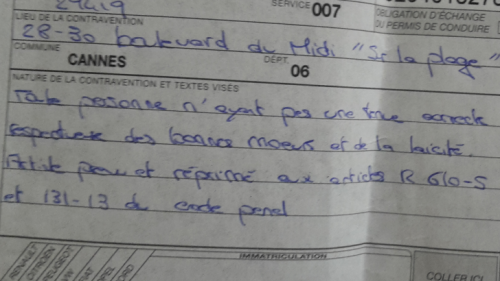 SERVICE 007
OBLIGATION D'ÉCHANGE
LIEU DE LA CONTRAVENTION
DU PERMIS DE CONDUIRE
28-30 boulevard du Midi "Sur la plage"
COMMUNE CANNES DÉPT. 06
NATURE DE LA CONTRAVENTION ET TEXTES VISÉS
Toute personne n'ayant pas une tenue correcte
respectueuse des bonnes moeurs et de la laïcité.
Article prévu et réprimé aux articles R 610-5
et 131-13 du code penal
IMMATRICULATION
RENAULT
CITROËN
PEUGEOT
VW
FIAT
OPEL
FORD
COLLER ICI